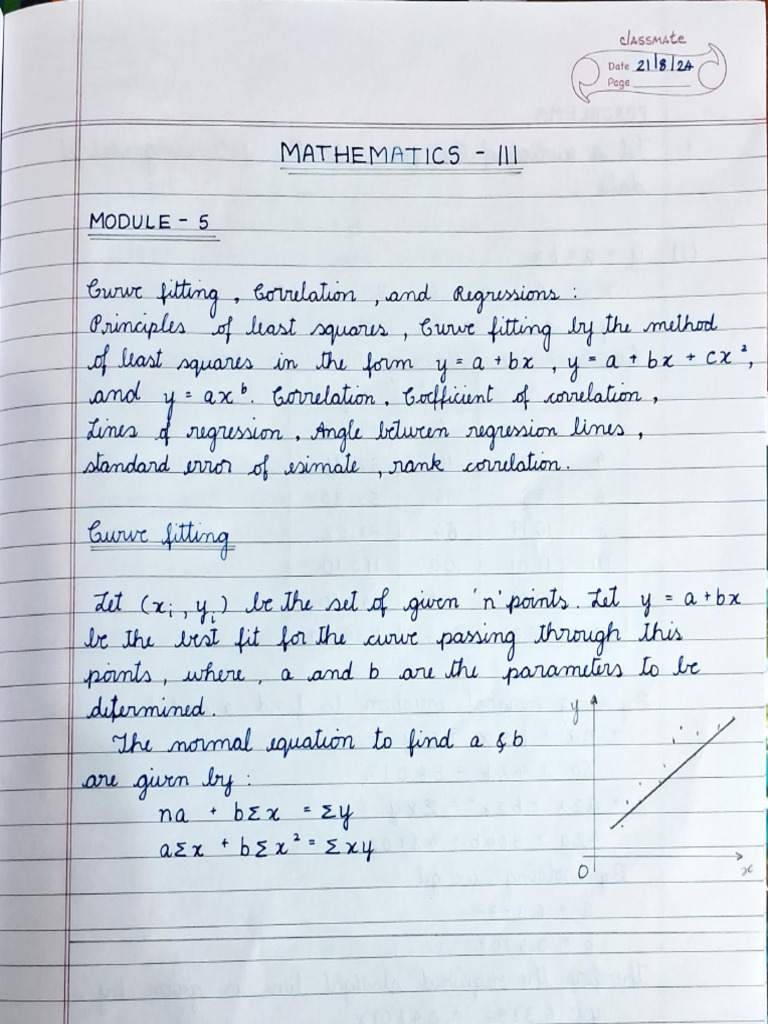 classmate
Date 21/8/24
Page
MATHEMATICS - III
MODULE - 5
Curve fitting, Correlation, and Regressions:
Principles of least squares, Curve fitting by the method
of least squares in the form y = a + bx, y = a + bx + cx²,
and y = ax^b. Correlation, Cofficient of correlation,
Lines of regression, Angle between regression lines,
standard error of esimate, rank correlation.
Curve fitting
Let (xi, yi) be the set of given 'n' points. Let y = a + bx
be the best fit for the curve passing through this
points, where, a and b are the parameters to be
determined.
The normal equation to find a & b
are given by:
na + bΣx = Σy
aΣx + bΣx² = Σxy
y
O
x